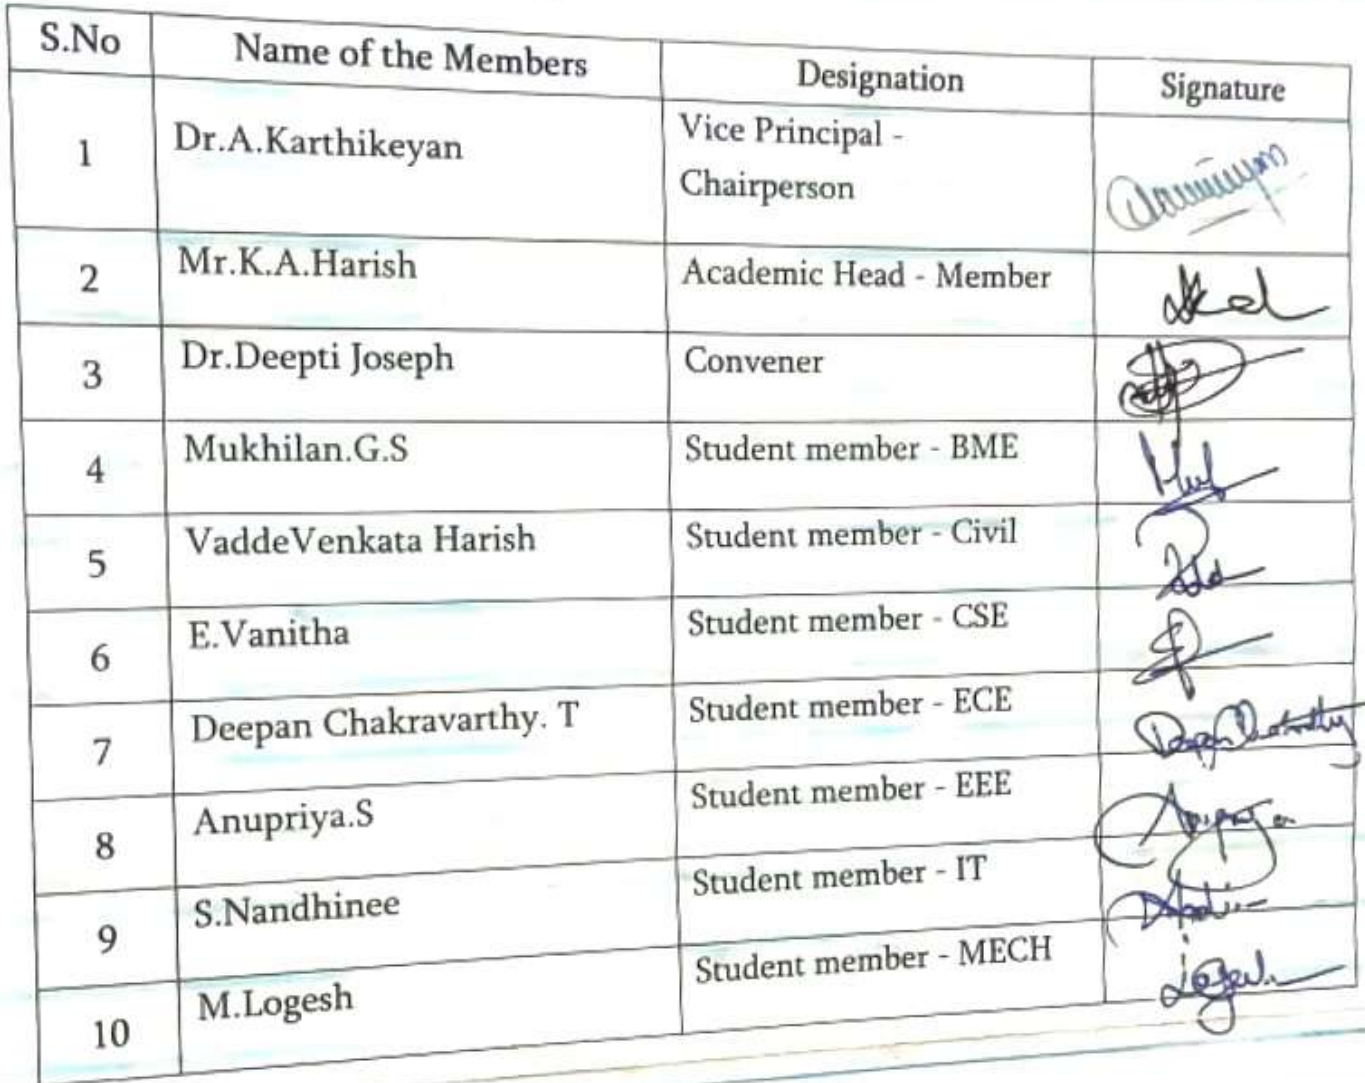 S.No Name of the Members Designation Signature
1 Dr.A.Karthikeyan Vice Principal -
Chairperson
2 Mr.K.A.Harish Academic Head - Member
3 Dr.Deepti Joseph Convener
4 Mukhilan.G.S Student member - BME
5 VaddeVenkata Harish Student member - Civil
6 E.Vanitha Student member - CSE
7 Deepan Chakravarthy. T Student member - ECE
8 Anupriya.S Student member - EEE
9 S.Nandhinee Student member - IT
10 M.Logesh Student member - MECH